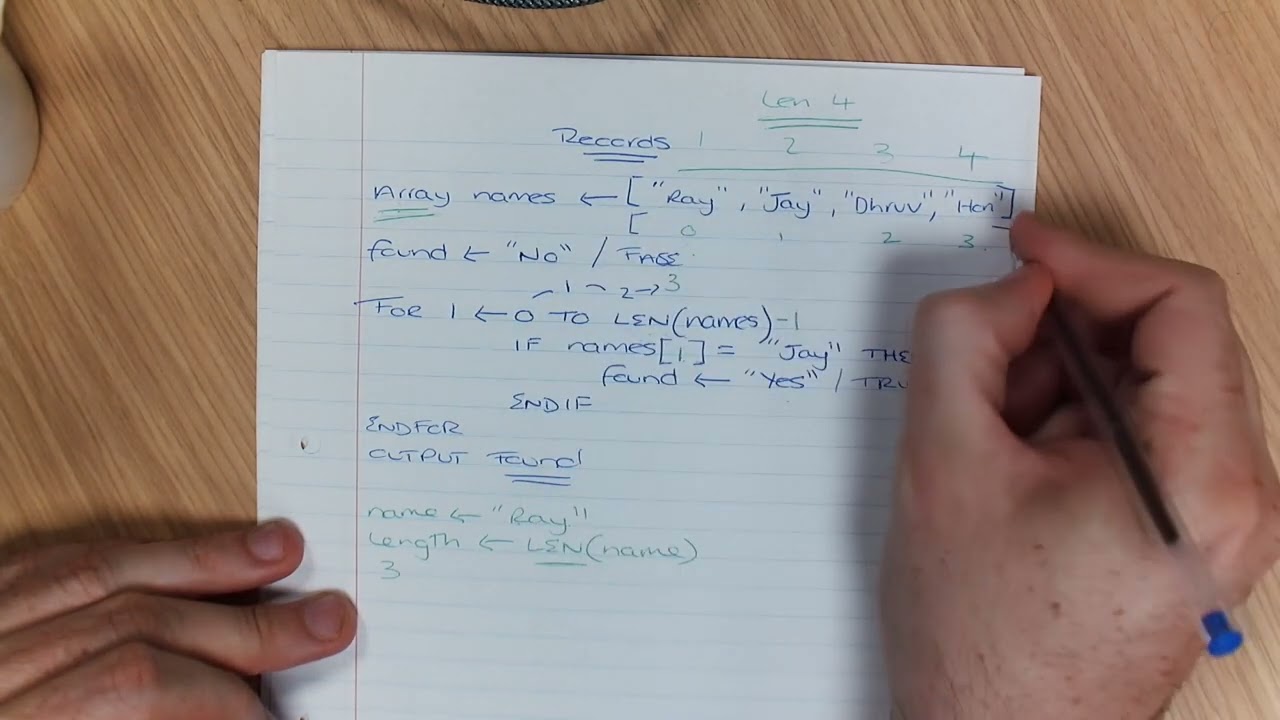 Len 4
Records 1 2 3 4
Array names ← ["Ray", "Jay", "Dhruv", "Han"]
[ 0 1 2 3
found ← "No" / FASE
1 2 → 3
FOR i ← 0 TO LEN(names)-1
IF names[i] = "Jay" THE
found ← "Yes" / TRU
ENDIF
ENDFOR
OUTPUT Found
name ← "Ray"
Length ← LEN(name)
3